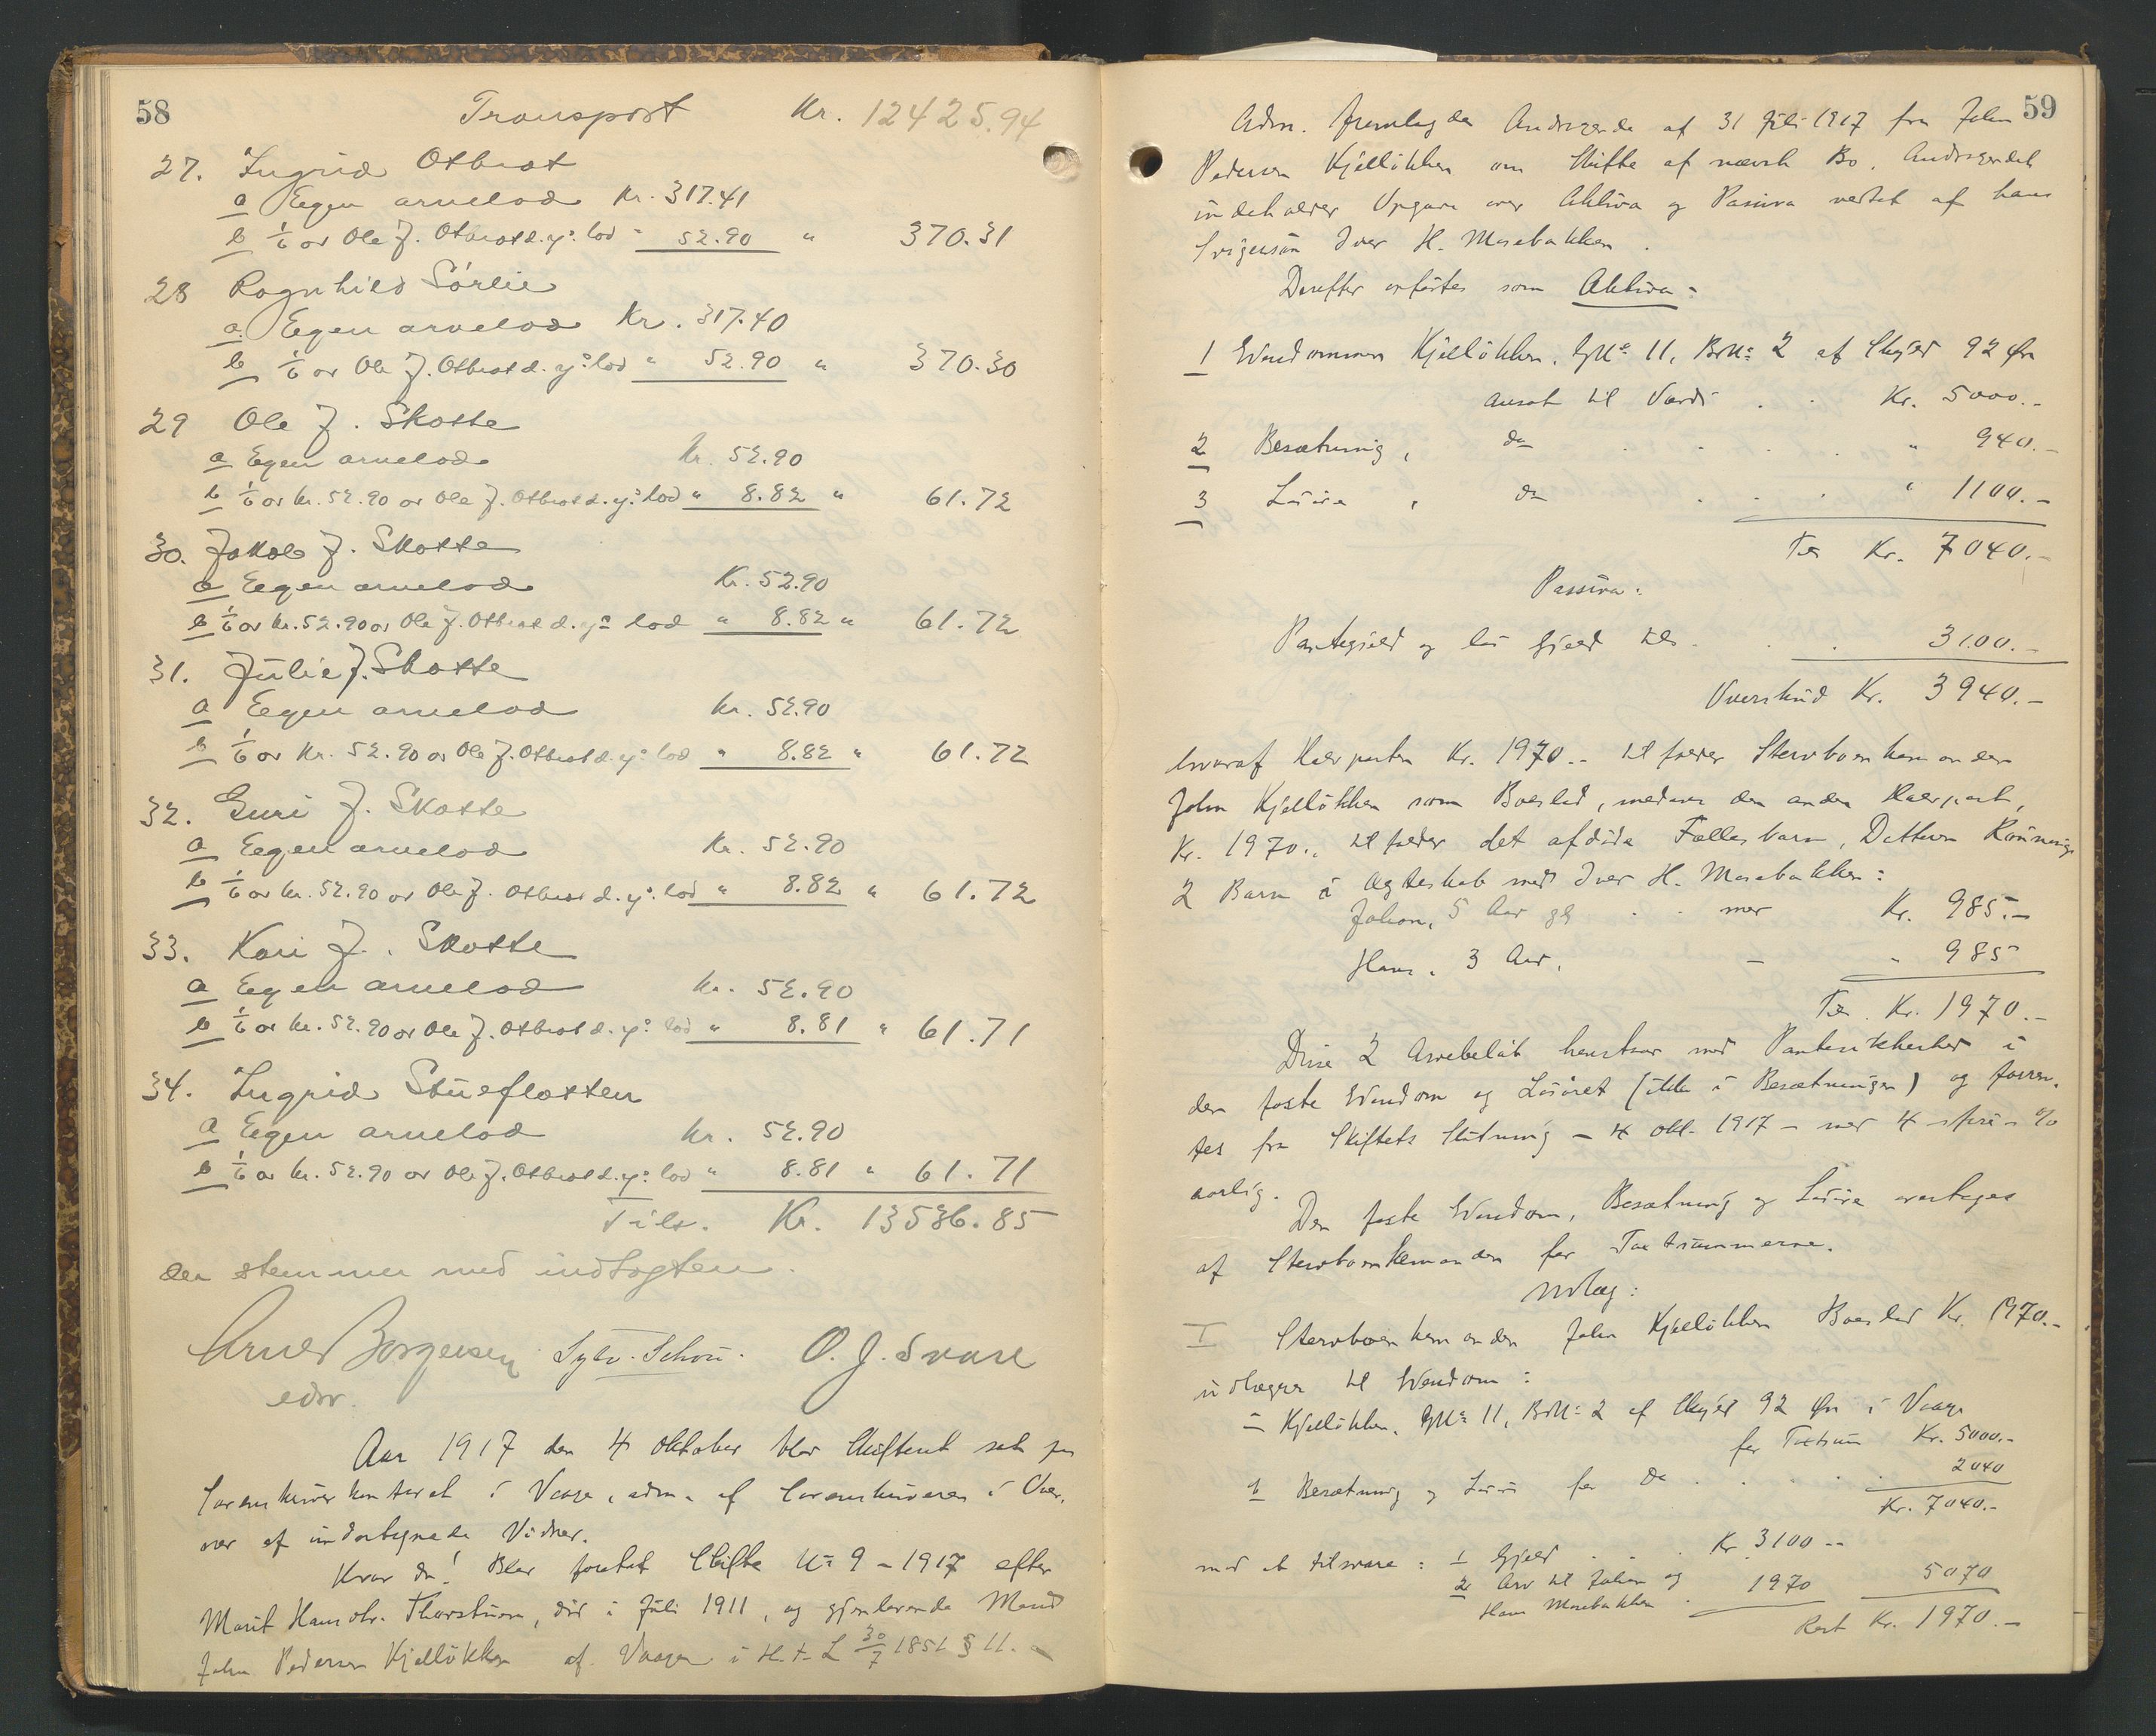 58
Transport Kr. 12425.94
27. Ingrid Otbrot
a Egen arvelod Kr. 317.41
b 1/6 av Ole J. Otbrot d. y: lod " 52.90 " 370.31
28 Ragnhild Sörlie
a. Egen arvelod Kr. 317.40
b 1/6 av Ole J. Otbrot d. y: lod " 52.90 " 370.30
29 Ole J. Skotte
a Egen arvelod Kr. 52.90
b 1/6 av kr. 52.90 av Ole J. Otbrot d. y: lod " 8.82 " 61.72
30. Jakob J. Skotte
a Egen arvelod Kr. 52.90
b 1/6 av kr. 52.90 av Ole J. Otbrot d. y: lod " 8.82 " 61.72
31. Julie J. Skotte
a Egen arvelod kr. 52.90
b 1/6 av Kr. 52.90 av Ole J. Otbrot d. y: lod " 8.82 " 61.72
32. Guri J. Skotte
a Egen arvelod Kr. 52.90
b 1/6 av kr. 52.90 av Ole J. Otbrot d. y: lod " 8.82 " 61.72
33. Kari J. Skotte
a Egen arvelod kr. 52.90
b 1/6 av kr. 52.90 av Ole J. Otbrot d. y: lod " 8.81 " 61.71
34. Ingrid Stueflotten
a Egen arvelod kr. 52.90
b 1/6 av kr. 52.90 av Ole J. Otbrot d. y: lod " 8.81 " 61.71
Tils. Kr. 13536.85
der stemmer med indtægten.
Arne Borgersen Sylv. Schou. O. J. Svare
edsv.
Aar 1917 den 4 oktober blev Skifteret sat paa
Sorenskriverkontoret i Vaage, adm. af Sorenskriveren i Over-
vær af undertegnede Vidner.
Hvor da! Blev foretat Skifte No 9 - 1917 efter
Marit Hansdtr. Thorstuen, död i Juli 1911, og gjenlevende Mand
John Pedersen Kjellökken af Vaage i H. t. L 30/7 1851 § 11. -
59
Adm. fremlagde Andragende af 31 Juli 1917 fra John
Pedersen Kjellökken om Skifte af nævnte Bo. Andragendet
indeholder Opgave over Aktiva og Passiva vedtat af hans
Svigersön Iver H. Mosebakken.
Derefter anförtes som Aktiva:
1 Eiendommen Kjellökken, GNo 11, BrNo: 2 af Skyld 92 Øre
ansat til Værdi . . Kr. 5000.-
2 Besætning, do . . . . " 940.-
3 Lösöre, do . . . " 1100.-
Tils Kr. 7040.-
Passiva:
Pantegjeld og lös Gjeld tils . . . 3100.-
Overskud Kr. 3940.-
hvoraf Halvparten Kr. 1970.- tilfalder Stervboenkemanden
John Kjellökken som Boeslod, medens den anden Halvpart,
Kr. 1970.- tilfalder det afdöde Fællesbarn, Datteren Rönnaugs
2 Barn i Ægteskab med Iver H. Mosebakken:
Johan, 5 Aar gl . . med Kr. 985.-
Hans, 3 Aar, - " 985
Tils. Kr. 1970.-
Disse 2 Arvebelöb henstaar med Pantesikkerhed i
den faste Eiendom og Lösöret (ikke i Besætningen) og forren-
tes fra Skiftets Slutning - 4 okt. 1917 - med 4 - fire - %
aarlig.
Den faste Eiendom, Besætning og Lösöre overtages
af Stervboenkemanden for Taxtsummerne.
Udlæg:
I Stervboenkemanden John Kjellökken Boeslod Kr. 1970.-
udlægges til Eiendom:
1 Kjellökken, GNo: 11, BrNo: 2 af Skyld 92 Øre i Vaage
for Taxtsum Kr. 5000.-
2 Besætning og Lösöre for Do . . . . . 2040
Kr. 7040.-
mod at tilsvare: 1 Gjeld . . . Kr 3100.--
2 Arv til Johan og
Hans Mosebakken . 1970 5070
Rest Kr. 1970.-